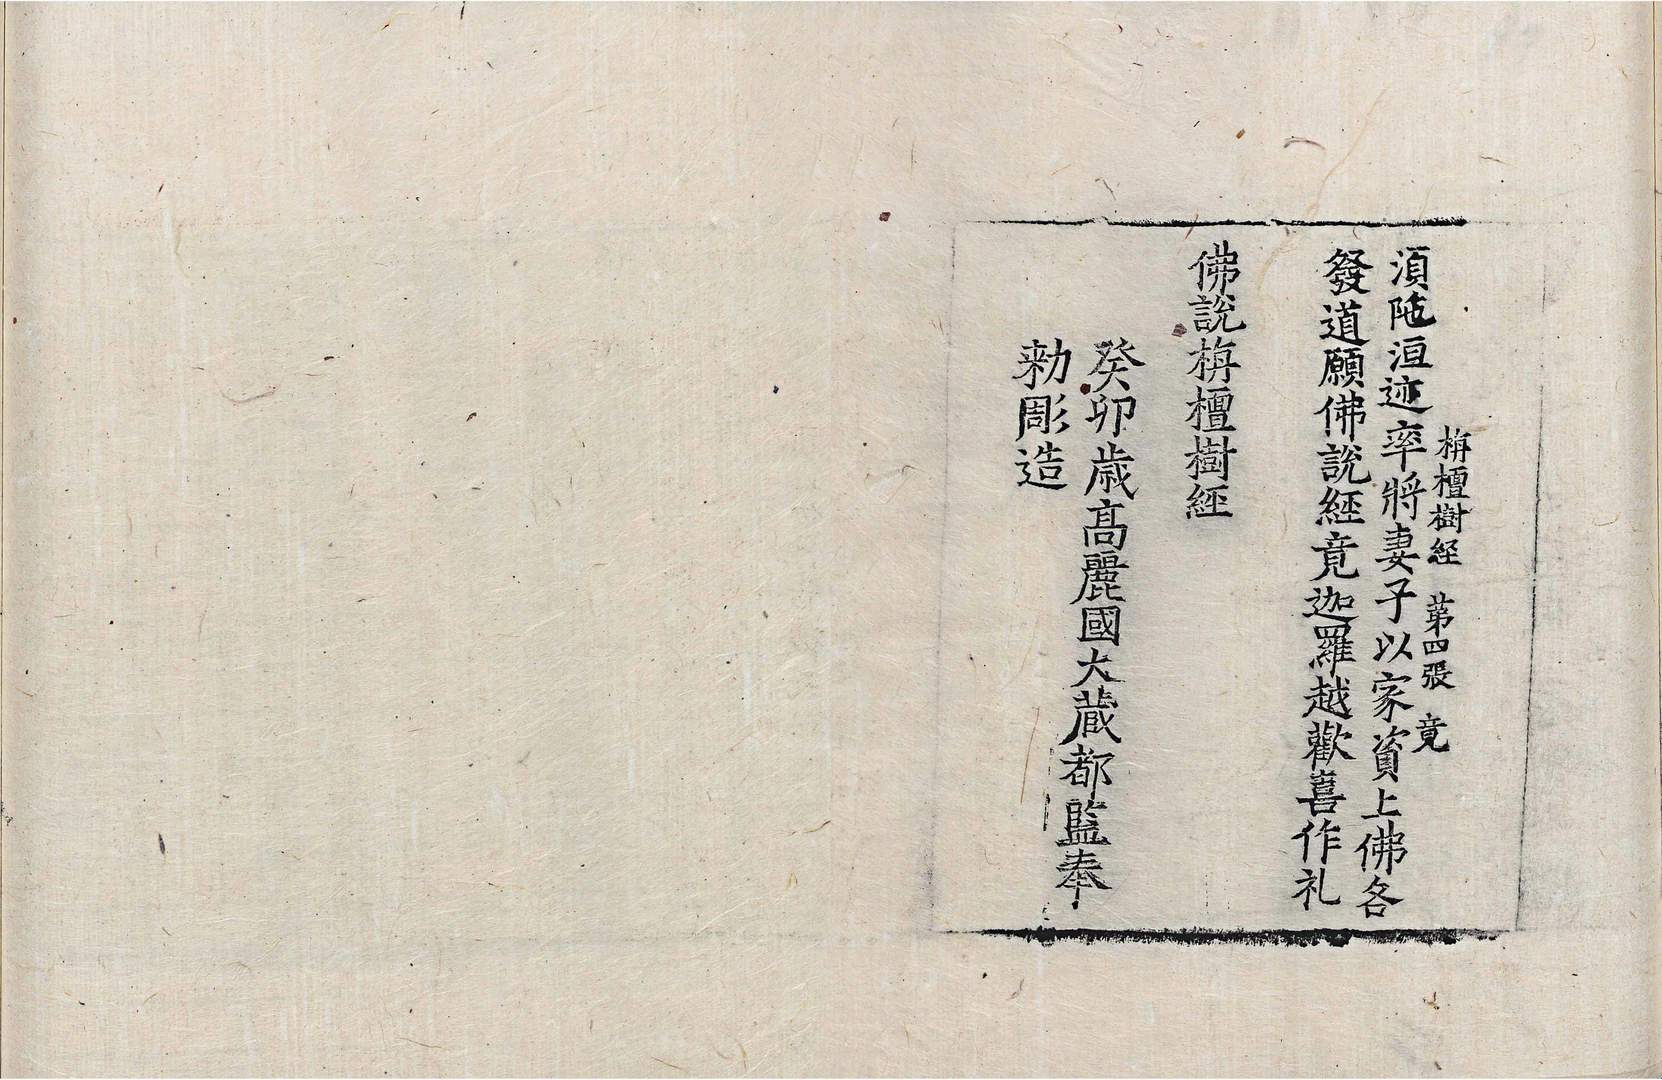 栴檀樹経 苐四張 竟
湏陁洹迹率將妻子以家資上佛各
發道願佛說經竟迦羅越歡喜作礼
佛說栴檀樹經
癸卯歳髙麗國大藏都監奉
勑彫造